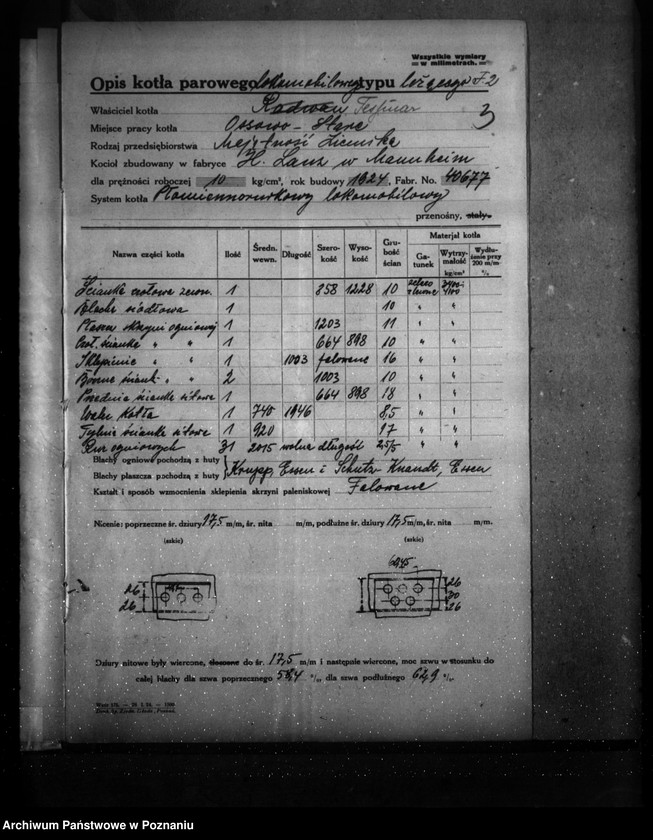 Wszystkie wymiary
w milimetrach.
Opis kotła parowego lokomobilowego typu leżącego F.2
Właściciel kotła
3
Miejsce pracy kotła Ossowo-Stare
Rodzaj przedsiębiorstwa Majętność Ziemska
Kocioł zbudowany w fabryce H. Lanz w Mannheim
dla prężności roboczej 10 kg/cm², rok budowy 1924, Fabr. No. 40677
System kotła Płomiennorurkowy lokomobilowy
przenośny, stały.
Nazwa części kotła Ilość Średn. wewn. Długość Szerokość Wysokość Grubość ścian Materjał kotła Gatunek Wytrzymałość kg/cm² Wydłużenie przy 200 m/m %
Ścianka czołowa zewn. 1 858 1228 10
Blacha siodłowa 1 10 " "
Płaszcz skrzyni ogniowej 1 1203 11 " "
ścianka " " 1 664 898 10 " "
Sklepienie " " 1 1003 falowane 16 " "
Boczne ściank. " " 2 1003 10 " "
Przednia ścianka sitowa 1 664 898 18 " "
Walec kotła 1 740 1946 8,5 " "
Tylnia ścianka sitowa 1 920 17 " "
Rur ogniowych 31 2015 wolna długość " "
Blachy ogniowe pochodzą z huty
Blachy płaszcza pochodzą z huty
Krupp, Essen i Schulz Knaudt, Essen
Kształt i sposób wzmocnienia sklepienia skrzyni paleniskowej Falowane
Nicenie: poprzeczne śr. dziury 17,5 m/m, śr. nita m/m, podłużne śr. dziury 17,5 m/m, śr. nita m/m.
(szkic) (szkic)
26
26
26
30
26
Dziury nitowe były wiercone, do śr. 17,5 m/m i następnie wiercone, moc szwu w stosunku do
całej blachy dla szwa poprzecznego 58,4 %, dla szwa podłużnego 62,9 %.
Archiwum Państwowe w Poznaniu